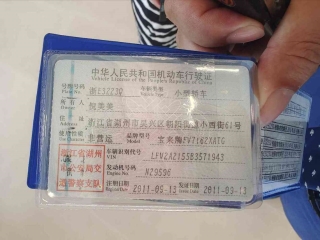 中华人民共和国机动车行驶证
Vehicle License of the People's Republic of China
号牌号码 浙E3ZZ3Q 车辆类型 小型轿车
Plate No. Vehicle Type
所有人 倪英英
住址 浙江省湖州市吴兴区朝阳街道小西街61号
使用性质 非营运 品牌型号 宝来牌FV7162XATG
车辆识别代号 LFV2A2155B3571943
VIN
发动机号码 N29596
Engine No.
注册日期 2011-09-13 发证日期 2011-09-13
浙江省湖州
市公安局交
通警察支队